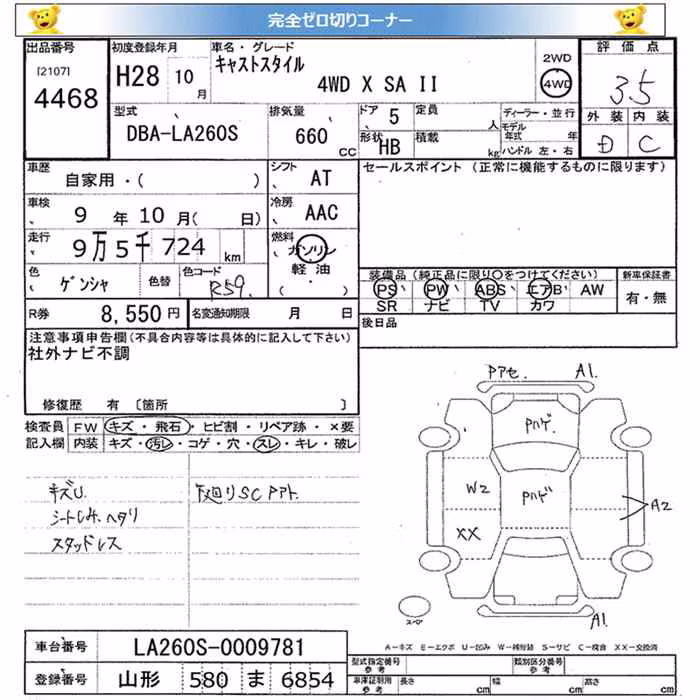 完全ゼロ切りコーナー
出品番号 [2107] 4468
初度登録年月 H28 10月
車名・グレード キャストスタイル 4WD X SA II
2WD 4WD
評価点 3.5
外装 内装
D C
型式 DBA-LA260S
排気量 660 CC
ドア 5
形状 HB
定員 人
積載 kg
ディーラー・並行
モデル年式 年
ハンドル 左・右
車歴 自家用・( )
シフト AT
セールスポイント (正常に機能するものに限ります)
車検 9年10月( 日)
冷房 AAC
走行 9万5千724 km
燃料 ガソリン 軽油 ( )
色 ゲンシャ 色替 色コード R59
装備品 (純正品に限り○をつけてください)
PS、 PW、 ABS、 エアB、 AW
SR ナビ TV カワ
新車保証書 有・無
R券 8,550円 名変通知期限 月 日
後日品
注意事項申告欄(不具合内容等は具体的に記入して下さい)
社外ナビ不調
修復歴 有 〔箇所 〕
検査員記入欄
FW キズ・飛石・ヒビ割・リペア跡・×要
内装 キズ・汚レ・コゲ・穴・スレ・キレ・破レ
キズU.
シートしみ、ヘタリ
スタッドレス
下廻りSCアト.
Pアセ. A1.
Pハゲ.
W2 Pハゲ A2
XX
スペア A1.
A-キズ E-エクボ U-凹み W-補修跡 S-サビ C-腐食 XX-交換済
車台番号 LA260S-0009781
登録番号 山形 580 ま 6854
型式指定番号 参考 類別区分番号 参考
車庫証明用 参考 長さ cm 幅 cm 高さ cm